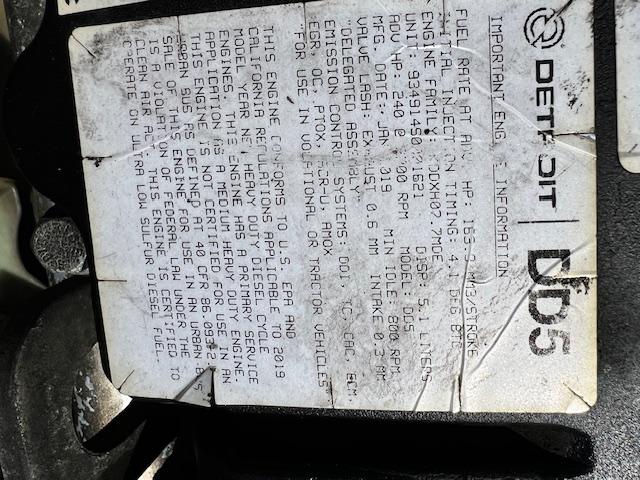 DETROIT DD5
IMPORTANT ENG INFORMATION
FUEL RATE AT HP: MM3/STROKE
INJECTION TIMING: 4.1 DEG
ENGINE FAMILY:
UNIT: DISP: 5.1 LITERS
ADV HP: 240 @ RPM MODEL: DD5
MFG. DATE: JAN MIN IDLE: 800 RPM
VALVE LASH: EXHAUST 0.6 MM INTAKE 0.3 MM
"DELEGATED ASSEMBLY"
EMISSION CONTROL SYSTEMS: DDI, TC, CAC, ECM,
EGR, OC, PTOX, SCR-U, AMOX
"FOR USE IN VOCATIONAL OR TRACTOR VEHICLES"
THIS ENGINE CONFORMS TO U.S. EPA AND
CALIFORNIA REGULATIONS APPLICABLE TO 2019
MODEL YEAR NEW HEAVY DUTY DIESEL CYCLE
ENGINES. THIS ENGINE HAS A PRIMARY SERVICE
APPLICATION AS A MEDIUM HEAVY DUTY ENGINE.
THIS ENGINE IS NOT CERTIFIED FOR USE IN AN
URBAN BUS AS DEFINED AT 40 CFR
SALE OF THIS ENGINE FOR USE IN AN URBAN BUS
IS A VIOLATION OF FEDERAL LAW UNDER THE
CLEAN AIR ACT. THIS ENGINE IS CERTIFIED TO
OPERATE ON ULTRA LOW SULFUR DIESEL FUEL.